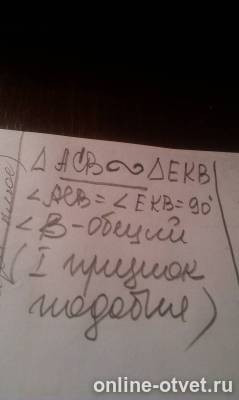 △ ACB ∾ △EKB
∠ACB = ∠EKB = 90°
∠B - общий
(I признак
подобия)
online-otvet.ru